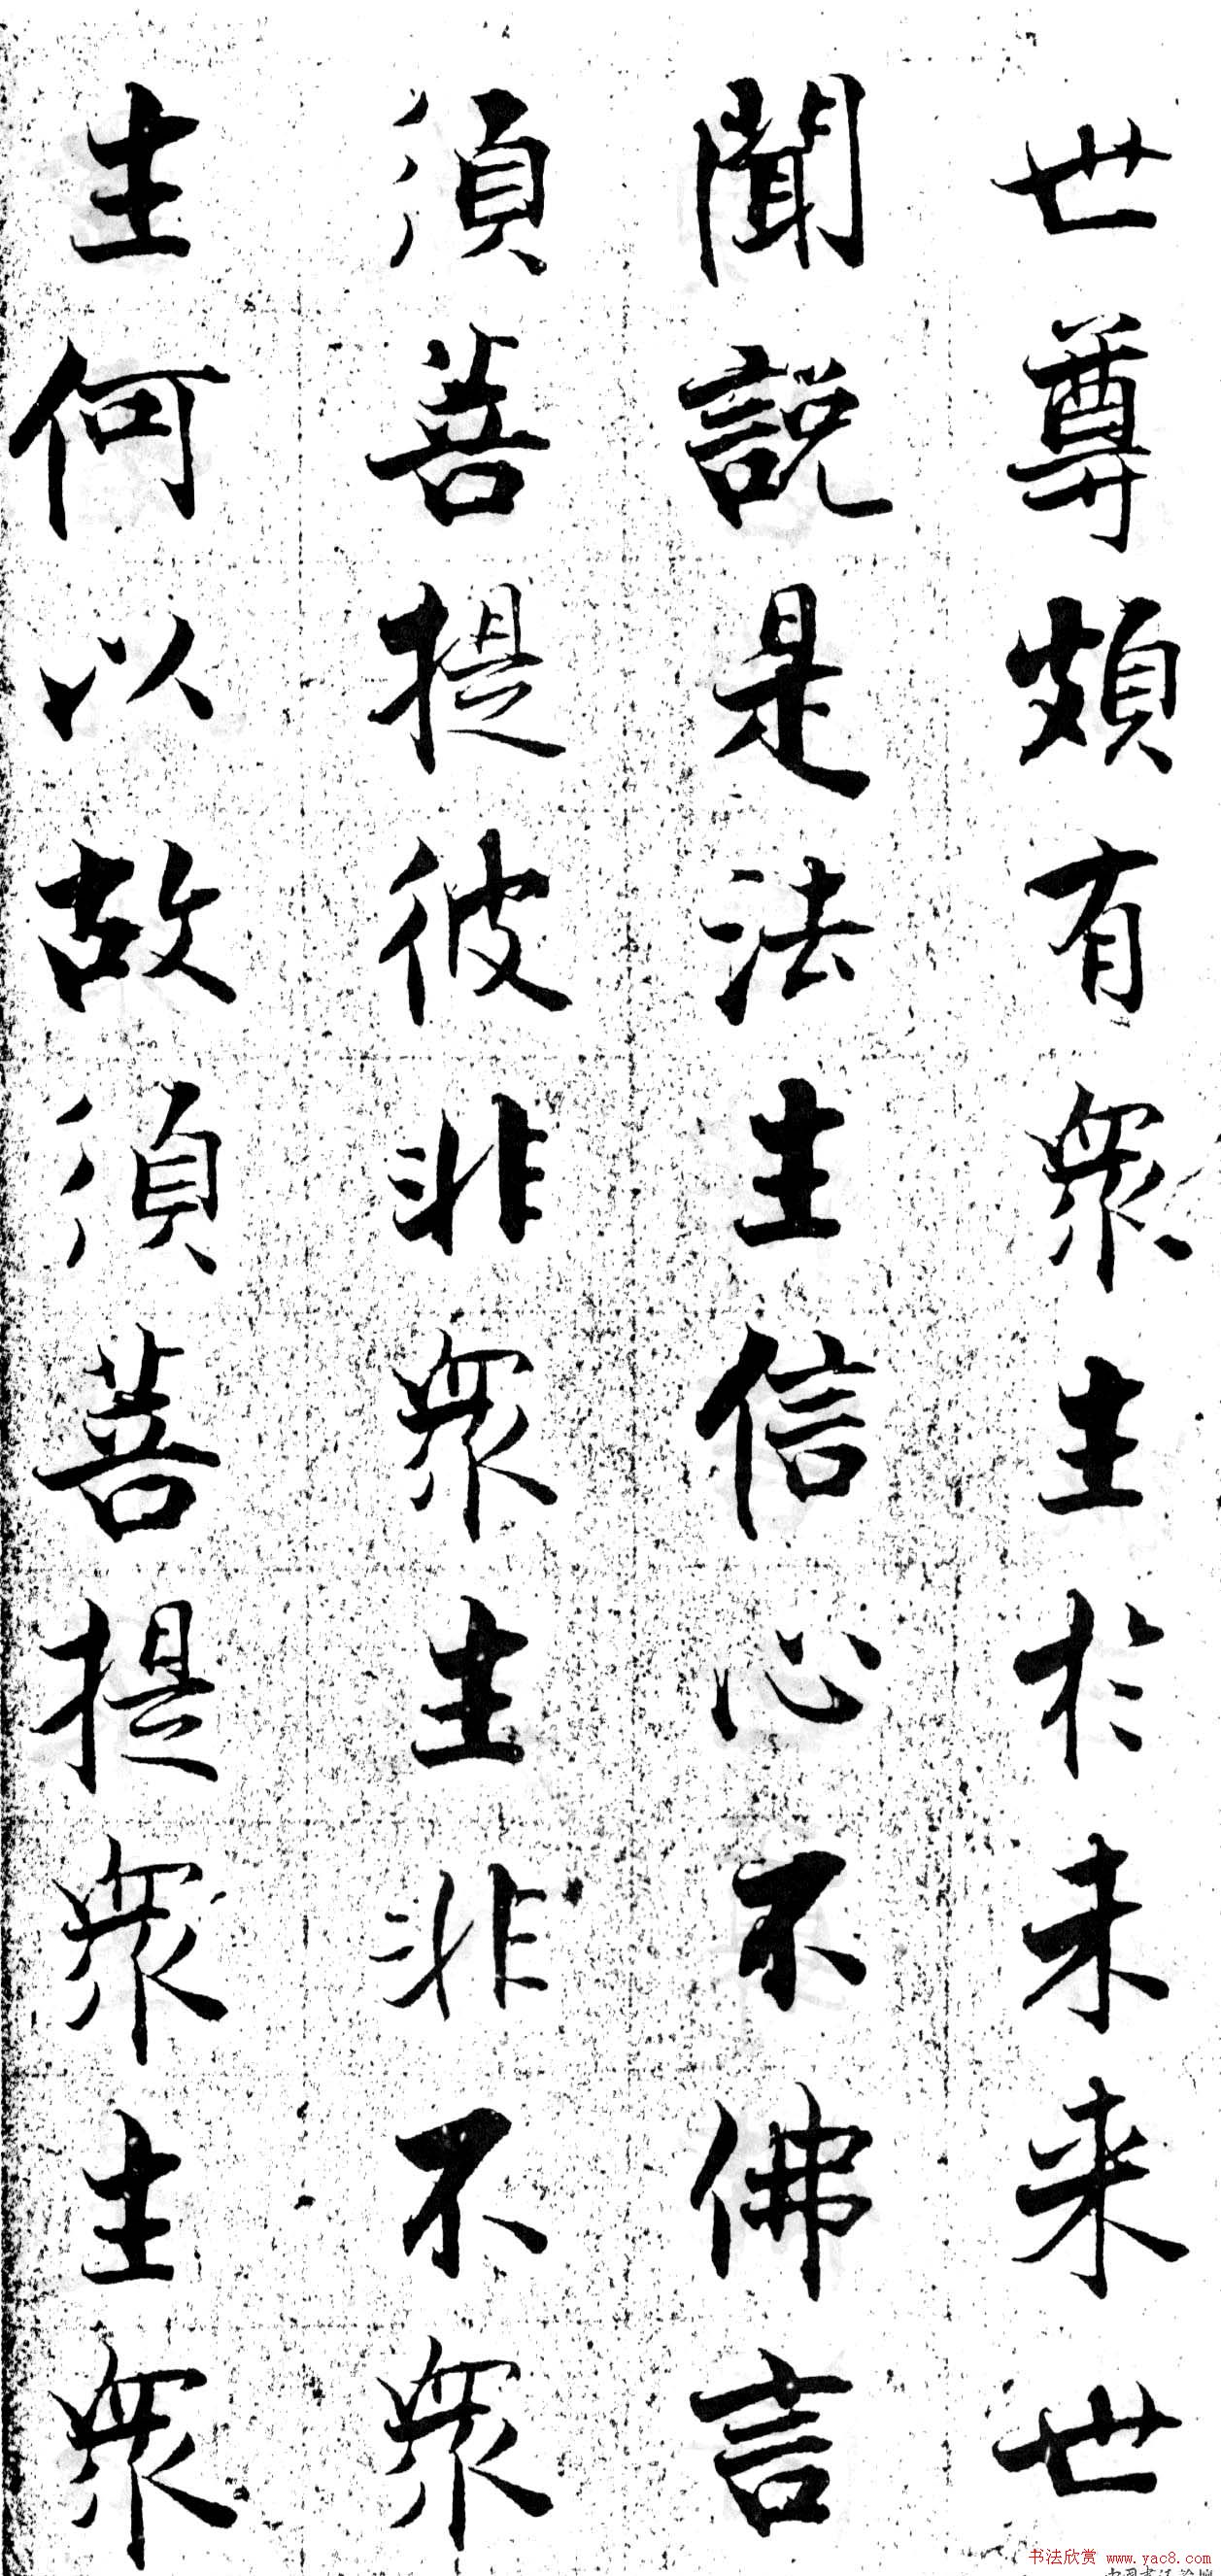 世尊頗有眾生於未来世
聞説是法生信心不佛言
須菩提彼非眾生非不眾
生何以故須菩提眾生眾
书法欣赏 www.yac8.com